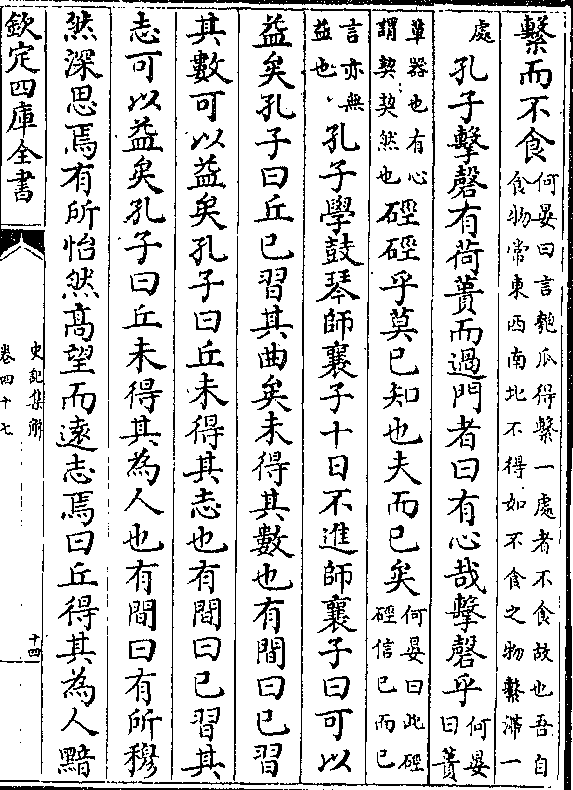 繫而不食
何晏曰言匏瓜得繫一處者不食故也吾自
食物常東西南北不得如不食之物繫滯一
處
孔子擊磬有荷蕢而過門者曰有心哉擊磬乎
何晏
曰蕢
草器也有心
謂契契然也
硜硜乎莫已知也夫而已矣
何晏曰此硜
硜信已而已
言亦無
益也
孔子學鼓琴師襄子十日不進師襄子曰可以
益矣孔子曰丘已習其曲矣未得其數也有間曰已習
其數可以益矣孔子曰丘未得其志也有間曰已習其
志可以益矣孔子曰丘未得其為人也有間曰有所穆
然深思焉有所怡然高望而遠志焉曰丘得其為人黯
欽定四庫全書
史記集解
卷四十七
十四